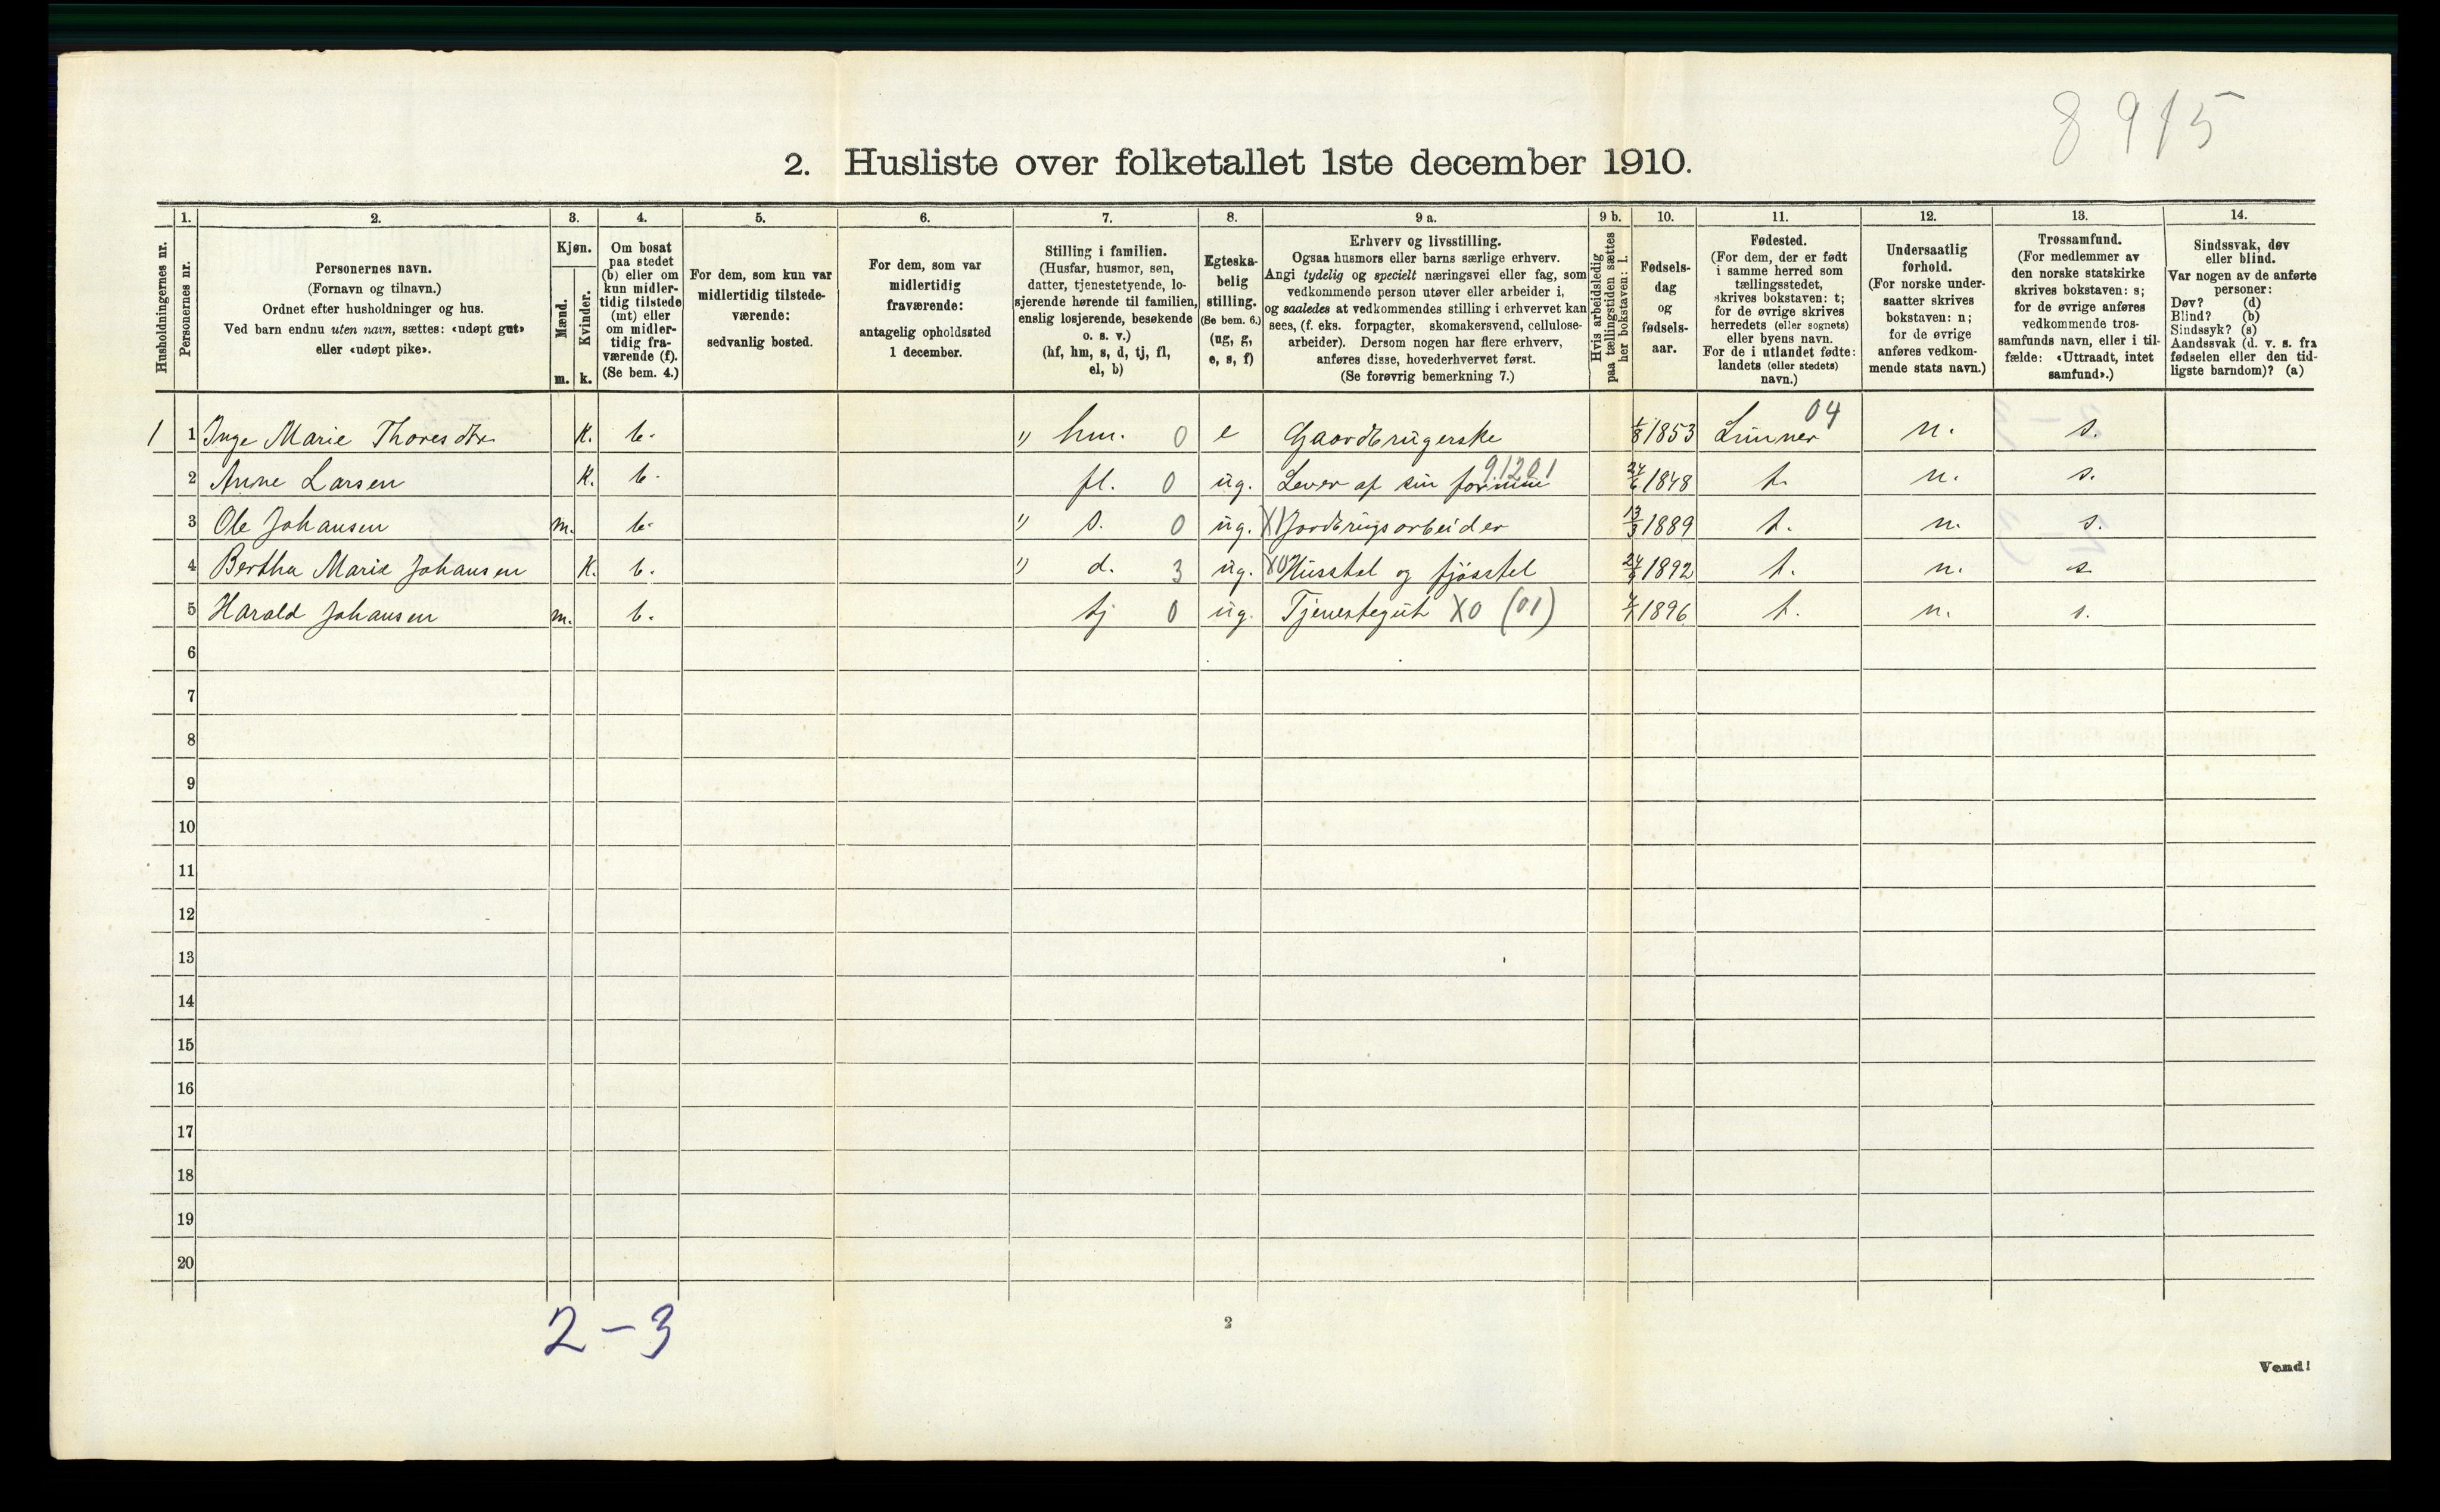 8915
2. Husliste over folketallet 1ste december 1910.
Husholdningernes nr.
1.
Personernes nr.
2.
Personernes navn.
(Fornavn og tilnavn.)
Ordnet efter husholdninger og hus.
Ved barn endnu uten navn, sættes: «udøpt gut»
eller «udøpt pike».
3.
Kjøn.
Mænd.
m.
Kvinder.
k.
4.
Om bosat
paa stedet
(b) eller om
kun midler-
tidig tilstede
(mt) eller
om midler-
tidig fra-
værende (f).
(Se bem. 4.)
5.
For dem, som kun var
midlertidig tilstede-
værende:
sedvanlig bosted.
6.
For dem, som var
midlertidig
fraværende:
antagelig opholdssted
1 december.
7.
Stilling i familien.
(Husfar, husmor, søn,
datter, tjenestetyende, lo-
sjerende hørende til familien,
enslig losjerende, besøkende
o. s. v.)
(hf, hm, s, d, tj, fl,
el, b)
8.
Egteska-
belig
stilling.
(Se bem. 6.)
(ug, g,
e, s, f)
9 a.
Erhverv og livsstilling.
Ogsaa husmors eller barns særlige erhverv.
Angi tydelig og specielt næringsvei eller fag, som
vedkommende person utøver eller arbeider i,
og saaledes at vedkommendes stilling i erhvervet kan
sees, (f. eks. forpagter, skomakersvend, cellulose-
arbeider). Dersom nogen har flere erhverv,
anføres disse, hovederhvervet først.
(Se forøvrig bemerkning 7.)
9 b.
Hvis arbeidsledig
paa tællingstiden sættes
her bokstaven: l.
10.
Fødsels-
dag
og
fødsels-
aar.
11.
Fødested.
(For dem, der er født
i samme herred som
tællingsstedet,
skrives bokstaven: t;
for de øvrige skrives
herredets (eller sognets)
eller byens navn.
For de i utlandet fødte:
landets (eller stedets)
navn.)
12.
Undersaatlig
forhold.
(For norske under-
saatter skrives
bokstaven: n;
for de øvrige
anføres vedkom-
mende stats navn.)
13.
Trossamfund.
(For medlemmer av
den norske statskirke
skrives bokstaven: s;
for de øvrige anføres
vedkommende tros-
samfunds navn, eller i til-
fælde: «Uttraadt, intet
samfund».)
14.
Sindssvak, døv
eller blind.
Var nogen av de anførte
personer:
Døv? (d)
Blind? (b)
Sindssyk? (s)
Aandssvak (d. v. s. fra
fødselen eller den tid-
ligste barndom)? (a)
04
1 1 Inge Marie Thoresdtr. K. b. " hm. 0 e Gaardbrugerske 1/8 1853 Lunner n. s.
91201
2 Anne Larsen K. b. fl. 0 ug. Lever af sin formue 24/6 1848 t. n. s.
3 Ole Johansen m. b. " s. 0 ug. X1 Jordbrugsarbeider 13/3 1889 t. n. s.
4 Bertha Marie Johansen K. b. " d. 3 ug. X0 Husstel og fjösstel 24/9 1892 t. n. s.
5 Harald Johansen m. b. tj 0 ug. Tjenestegut X0 (01) 1896 t. n. s.
6
7
8
9
10
11
12
13
14
15
16
17
18
19
20
2-3
2
Vend!